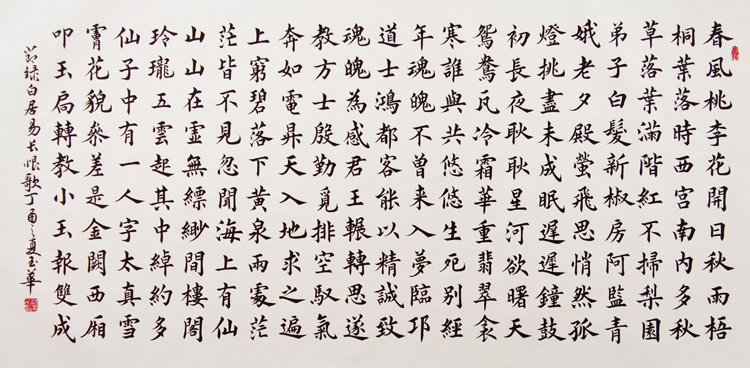 春風桃李花開日秋雨梧
桐葉落時西宮南內多秋
草落葉滿階紅不掃梨園
弟子白髮新椒房阿監青
娥老夕殿螢飛思悄然孤
燈挑盡未成眠遲遲鐘鼓
初長夜耿耿星河欲曙天
鴛鴦瓦冷霜華重翡翠衾
寒誰與共悠悠生死別經
年魂魄不曾來入夢臨邛
道士鴻都客能以精誠致
魂魄為感君王輾轉思遂
教方士殷勤覓排空馭氣
奔如電昇天入地求之遍
上窮碧落下黃泉兩處茫
茫皆不見忽聞海上有仙
山山在虛無縹緲間樓閣
玲瓏五雲起其中綽約多
仙子中有一人字太真雪
膚花貌參差是金闕西廂
叩玉扃轉教小玉報雙成
節録白居易长恨歌丁酉之夏玉華